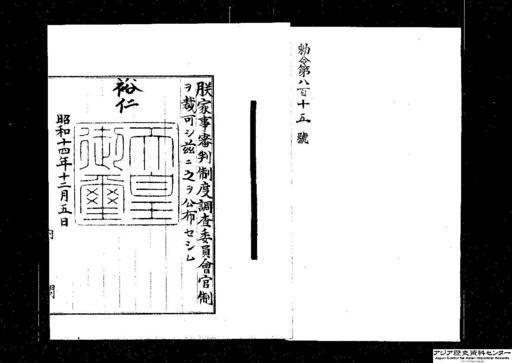 勅令第八百十五號
朕家事審判制度調査委員會官制
ヲ裁可シ茲ニ之ヲ公布セシム
裕仁
天皇御璽
昭和十四年十二月五日
内閣
アジア歴史資料センター
Japan Center for Asian Historical Records